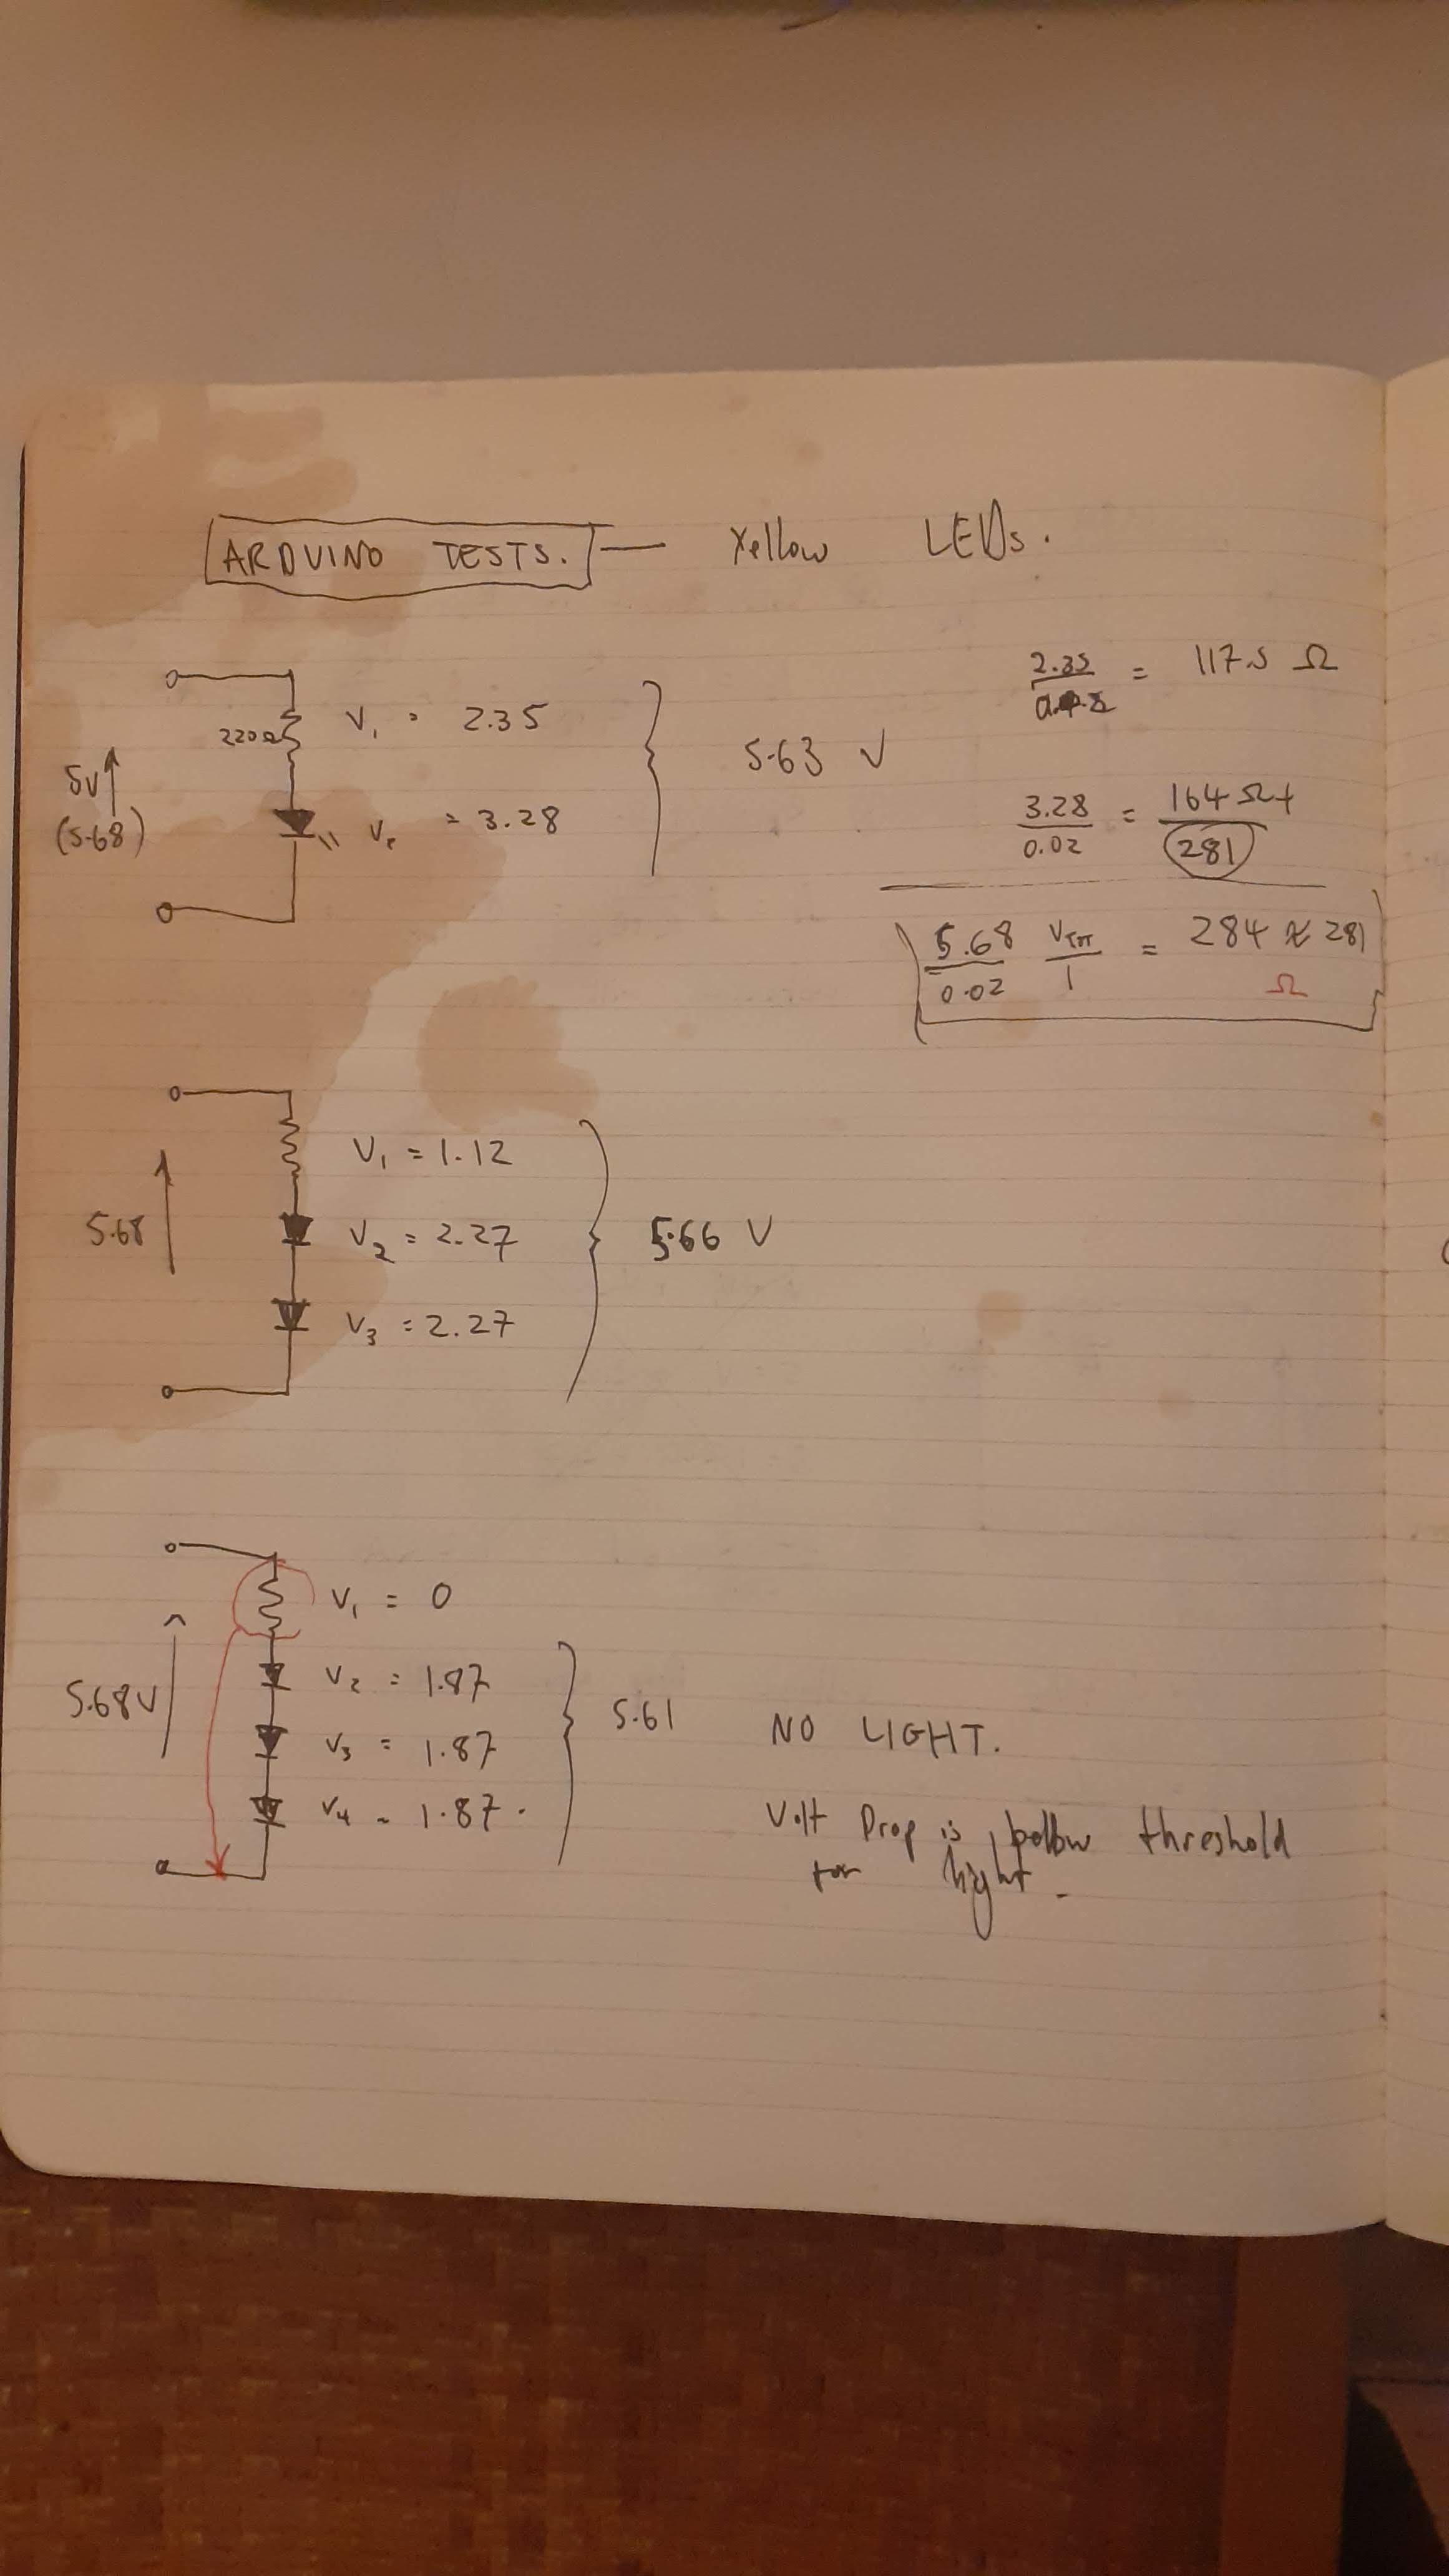 ARDUINO TESTS. — Yellow LEDs.
220Ω V₁ = 2.35
5V
(5.68)
= 3.28
5.63 V
2.35 = 117.5 Ω
3.28 / 0.02 = 164 Ω +
281
5.68 / 0.02 VTOT / I = 284 ≈ 281
Ω
5.68
V₁ = 1.12
V₂ = 2.27
V₃ = 2.27
5.66 V
5.68V
V₁ = 0
V₂ = 1.87
V₃ = 1.87
V₄ = 1.87.
5.61
NO LIGHT.
Volt Drop is bellow threshold
for light.